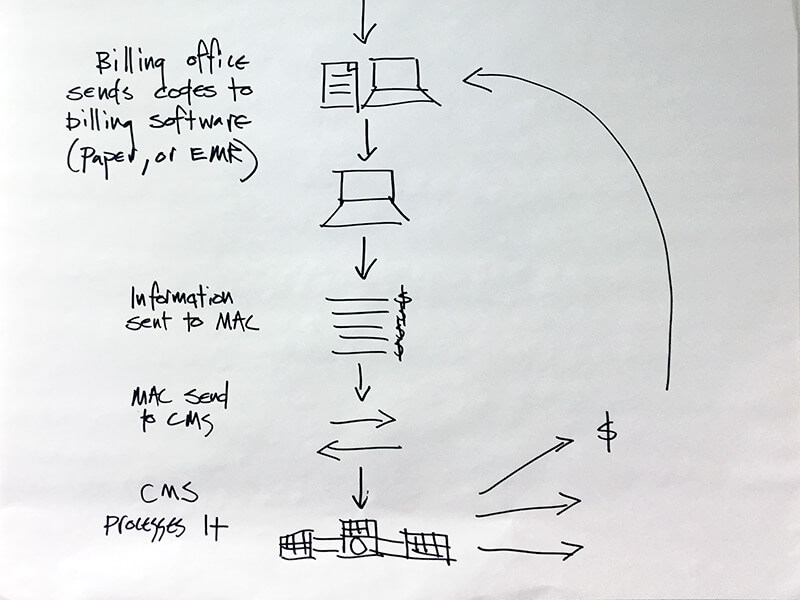 Billing office
sends codes to
billing software
(Paper, or EMR)
Information
sent to MAC
MAC send
to CMS
$
CMS
Processes It